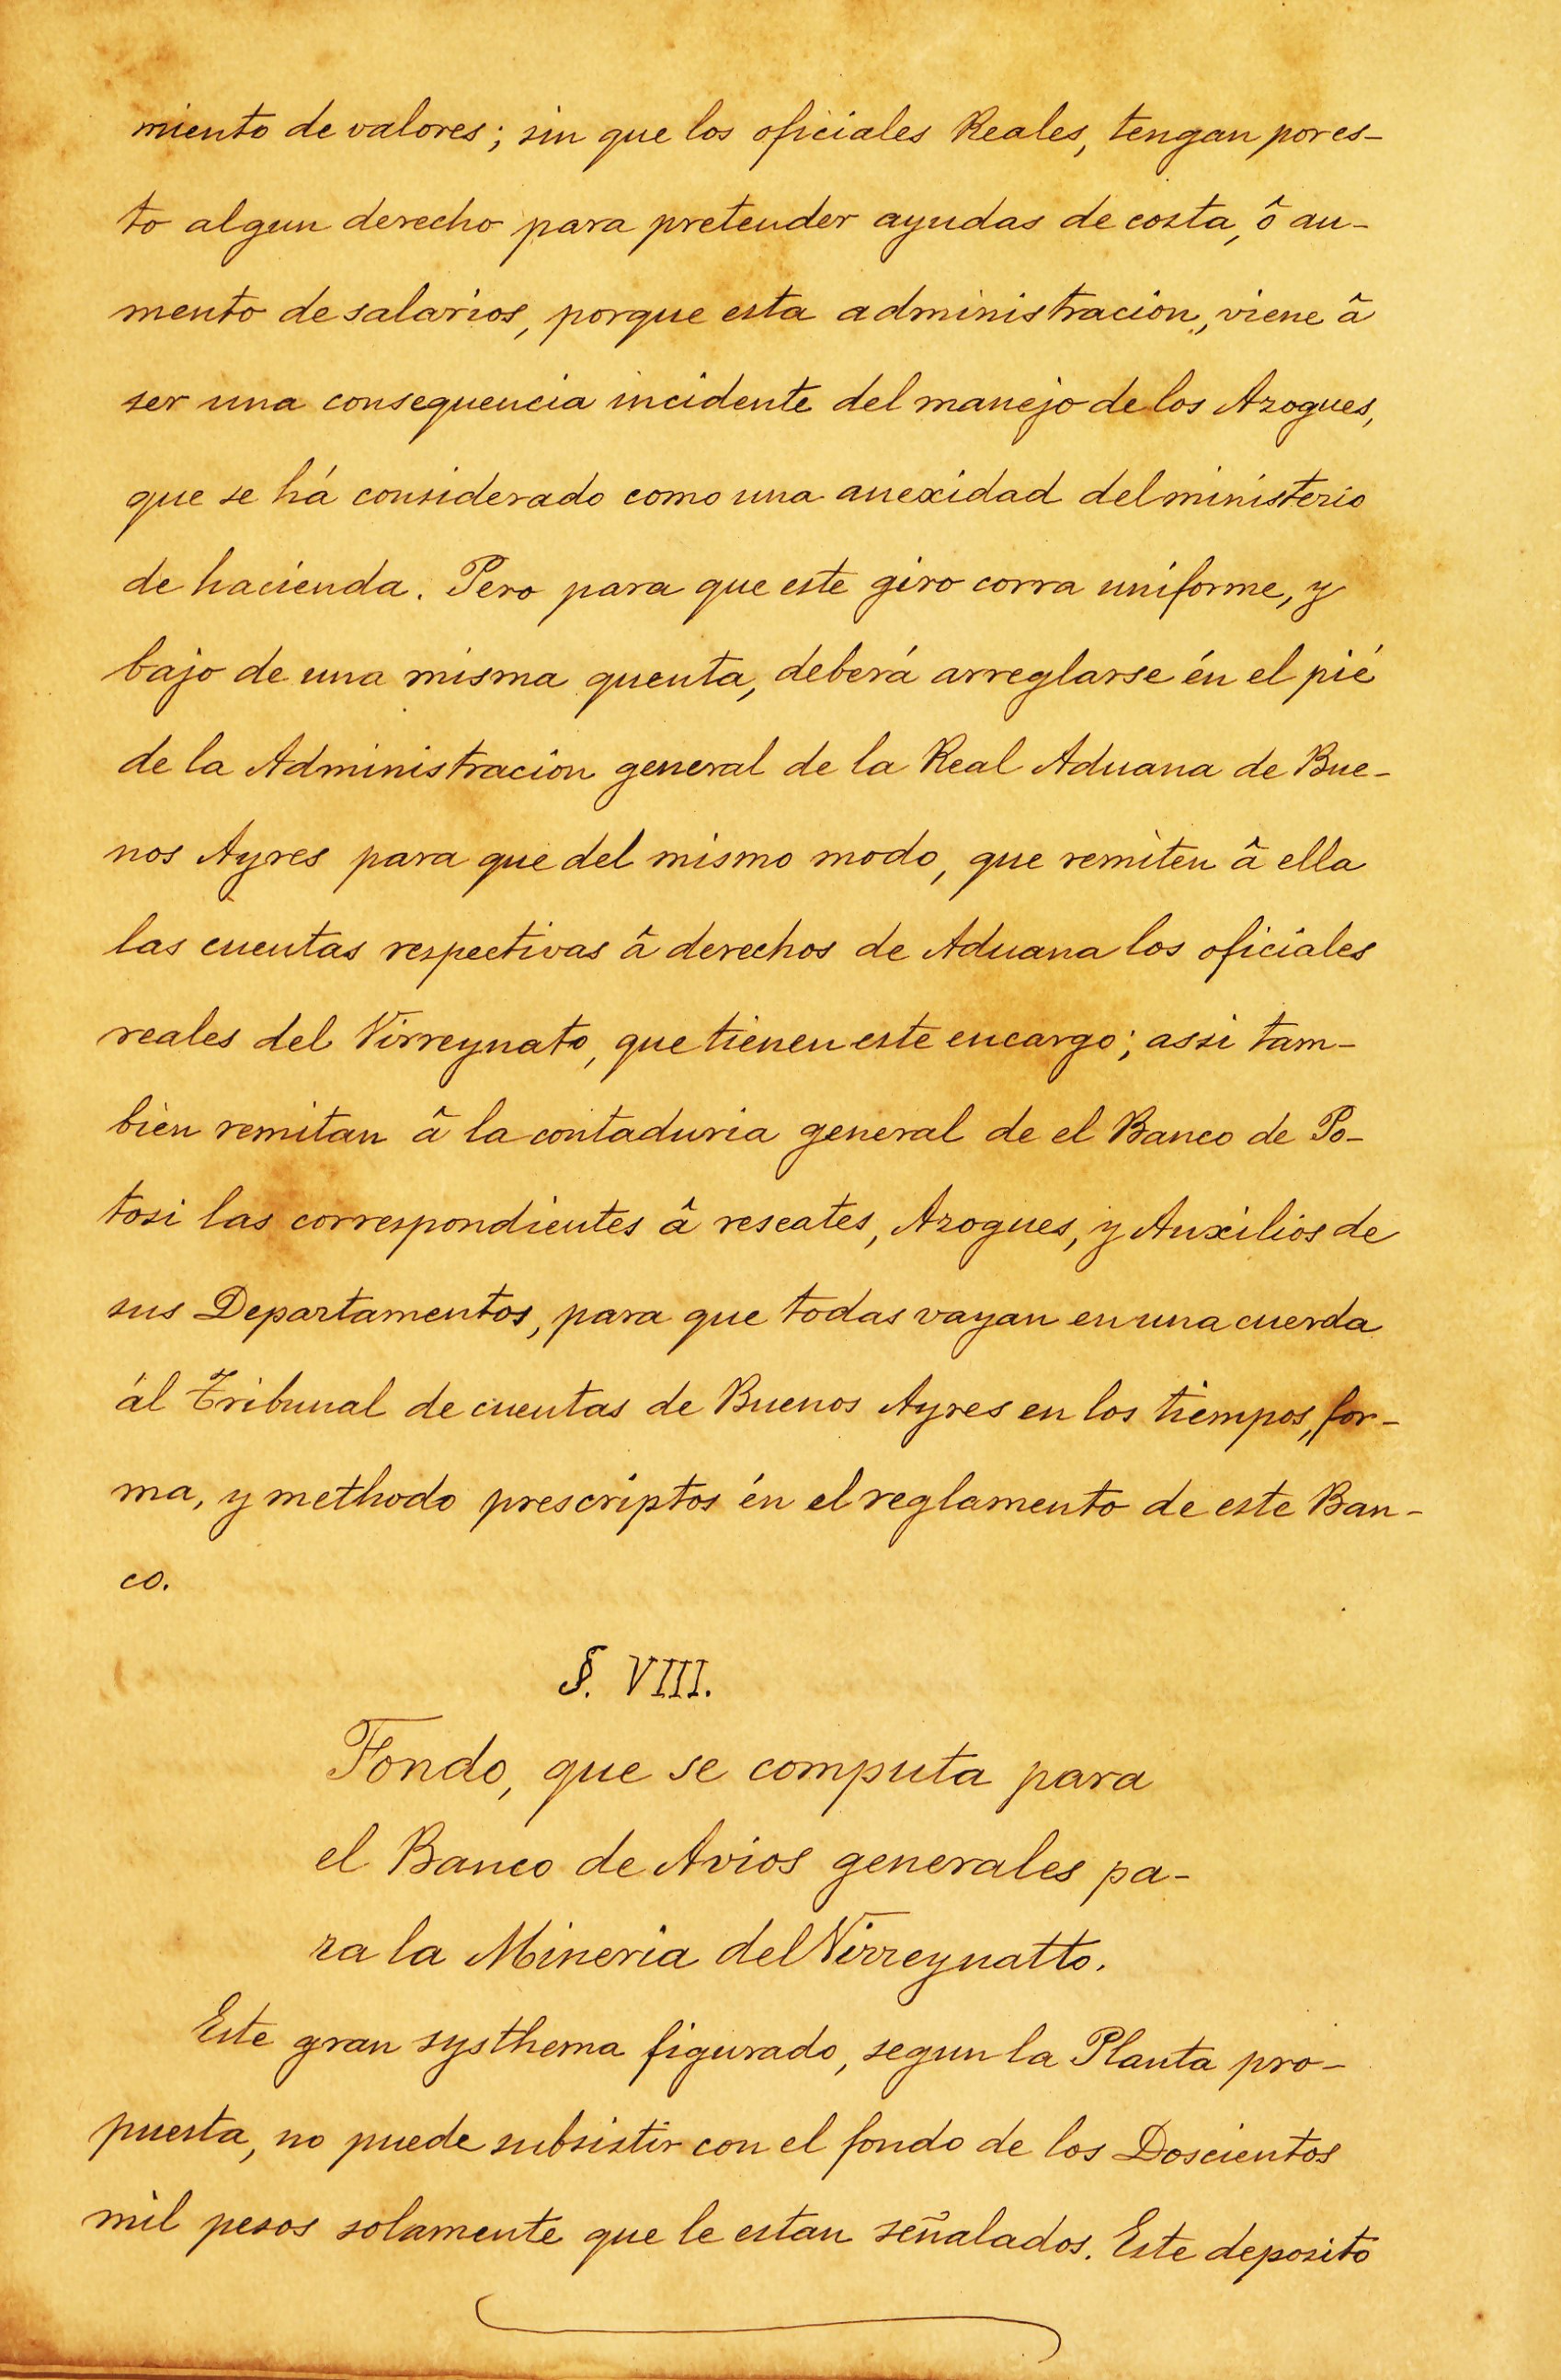 miento de valores; sin que los oficiales Reales, tengan por es-
to algun derecho para pretender ayudas de costa, ô au-
mento de salarios, porque esta administracion, viene â
ser una consequencia incidente del manejo de los Azogues,
que se há considerado como una anexidad del ministerio
de hacienda. Pero para que este giro corra uniforme, y
bajo de una misma quenta, deberá arreglarse én el pié
de la Administracion general de la Real Aduana de Bue-
nos Ayres para que del mismo modo, que remiten â ella
las cuentas respectivas â derechos de Aduana los oficiales
reales del Virreynato, que tienen este encargo; assi tam-
bien remitan â la contaduria general de el Banco de Po-
tosi las correspondientes â rescates, Azogues, y Auxilios de
sus Departamentos, para que todas vayan en una cuerda
ál Tribunal de cuentas de Buenos Ayres en los tiempos, for-
ma, y methodo prescriptos én el reglamento de este Ban-
co.
§. VIII.
Fondo, que se computa para
el Banco de Avios generales pa-
ra la Mineria del Virreynatto.
Este gran systhema figurado, segun la Planta pro-
puesta, no puede subsistir con el fondo de los Doscientos
mil pesos solamente que le estan señalados. Este deposito